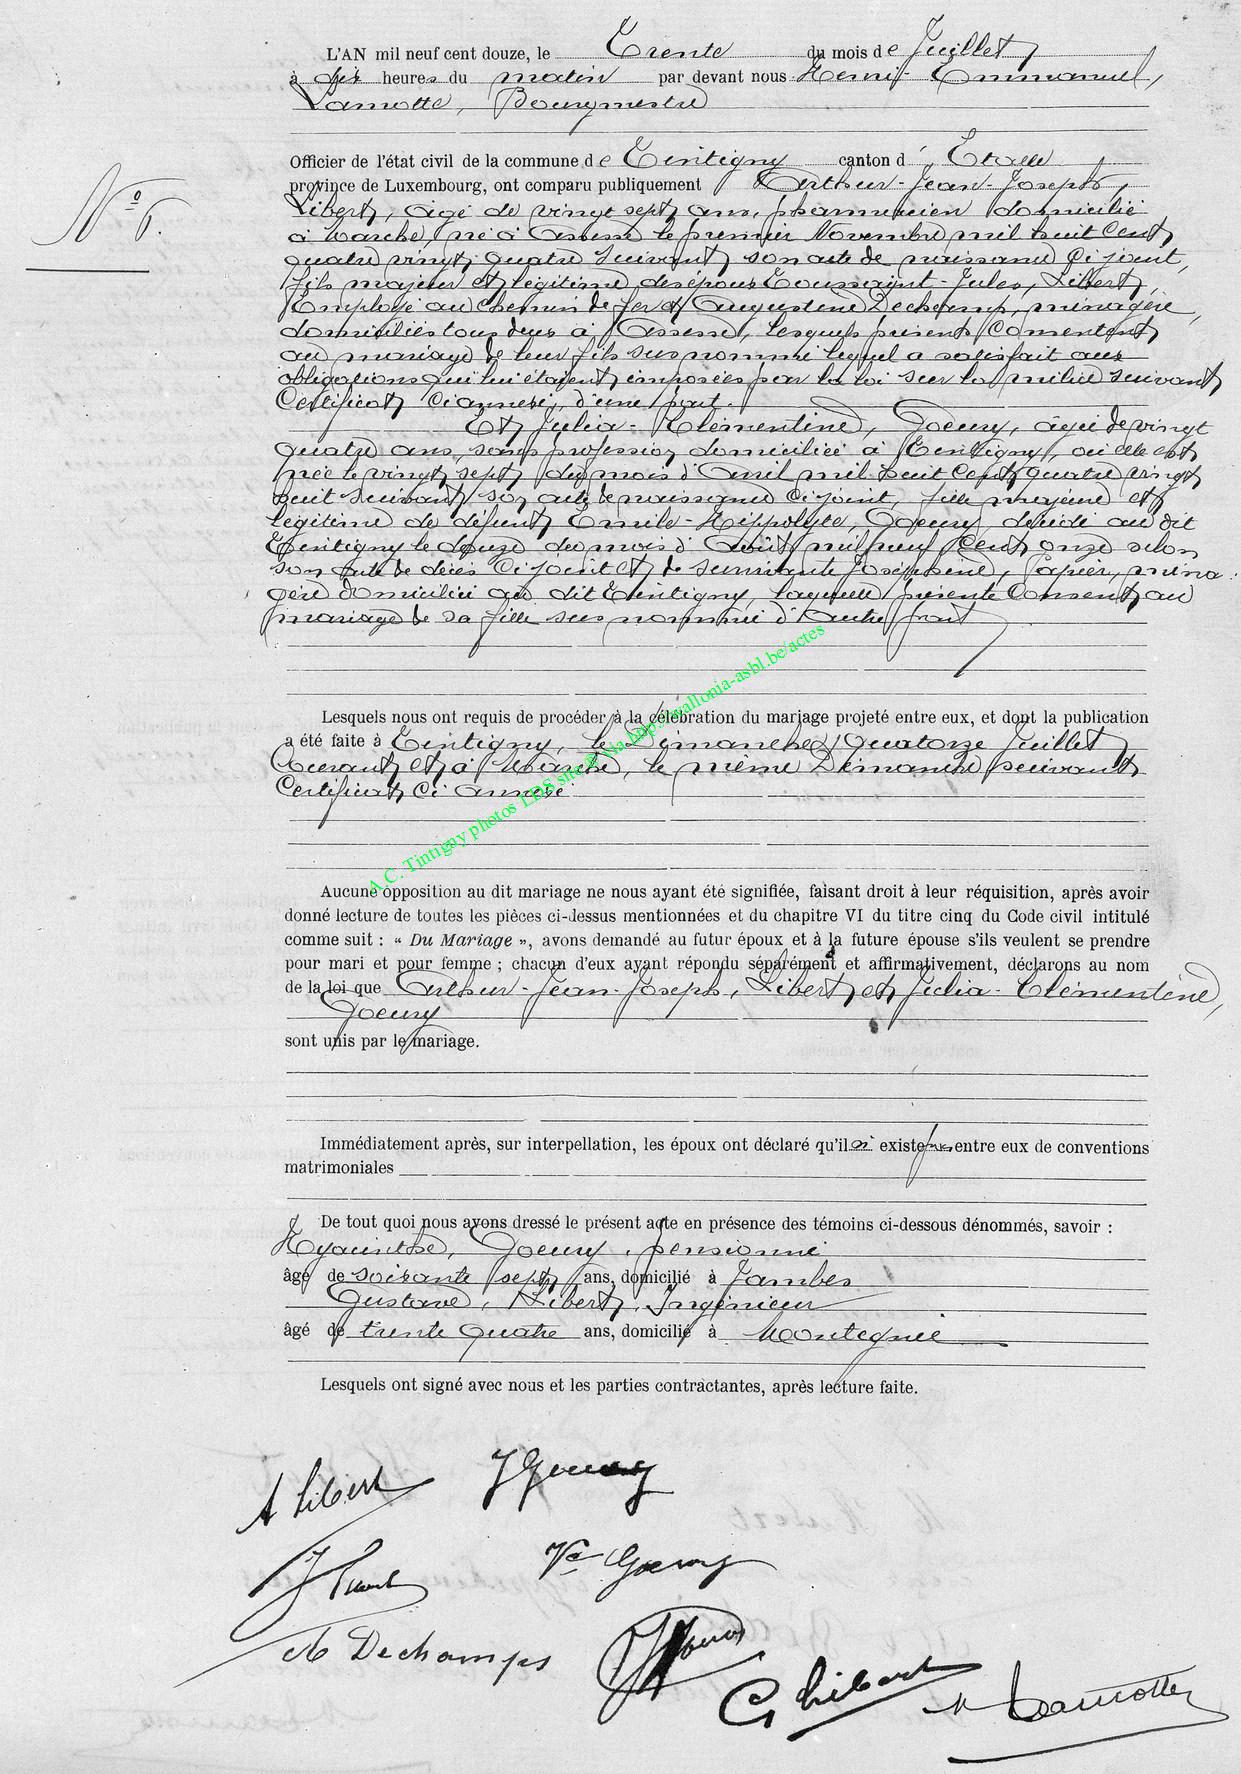 L'AN mil neuf cent douze, le Trente du mois de Juillet
à dix heures du matin par devant nous Henri-Emmanuel,
Lamotte, Bourgmestre
Officier de l'état civil de la commune de Tintigny canton d' Etalle
province de Luxembourg, ont comparu publiquement Arthur-Jean-Joseph,
Nº 6.
Libert, agé de vingt sept ans, pharmacien domicilié
à Marche, né à Assesse le premier Novembre mil huit cent
quatre vingt quatre suivant son acte de naissance ci joint,
fils majeur et légitime des époux Toussaint-Jules, Libert,
Employé au chemin de fer et Augustine Dechamp, ménagère,
domiciliés tous deux à Assesse, lesquels présents consentent
au mariage de leur fils susnommé lequel a satisfait aux
obligations qui lui étaient imposées par la loi sur la milice suivant
Certificat ci annexé, d'une part.
Et Julia-Clémentine, Goeury, âgée de vingt
quatre ans, sans profession domiciliée à Tintigny, où elle est
née le vingt sept du mois d'Avril mil huit cent quatre vingt
huit suivant son acte de naissance ci joint, fille majeure et
légitime de défunt Emile-Hippolyte, Goeury, décédé au dit
Tintigny le douze du mois d'Août mil neuf cent onze selon
son acte de décès ci joint et de survivante Joséphine, Papier, ména
gère domiciliée au dit Tintigny, laquelle présente consent au
mariage de sa fille sus nommée d'autre part
Lesquels nous ont requis de procéder à la célébration du mariage projeté entre eux, et dont la publication
a été faite à Tintigny, le Dimanche Quatorze Juillet
Courant et à Marche, le même Dimanche suivant
Certificat ci annexé
A.C. Tintigny photos LDS site @ via http://wallonia-asbl.be/actes
Aucune opposition au dit mariage ne nous ayant été signifiée, faisant droit à leur réquisition, après avoir
donné lecture de toutes les pièces ci-dessus mentionnées et du chapitre VI du titre cinq du Code civil intitulé
comme suit : « Du Mariage », avons demandé au futur époux et à la future épouse s'ils veulent se prendre
pour mari et pour femme ; chacun d'eux ayant répondu séparément et affirmativement, déclarons au nom
de la loi que Arthur-Jean-Joseph, Libert et Julia-Clémentine,
Goeury
sont unis par le mariage.
Immédiatement après, sur interpellation, les époux ont déclaré qu'il n' existe pas entre eux de conventions
matrimoniales
De tout quoi nous avons dressé le présent acte en présence des témoins ci-dessous dénommés, savoir :
Hyacinthe, Goeury, pensionné
âgé de soixante sept ans, domicilié à Jambes
Gustave, Libert, Ingénieur
âgé de trente quatre ans, domicilié à Montegnée
Lesquels ont signé avec nous et les parties contractantes, après lecture faite.
A Libert J Goeury
Ve Goeury
Dechamps
G Libert Lamotte